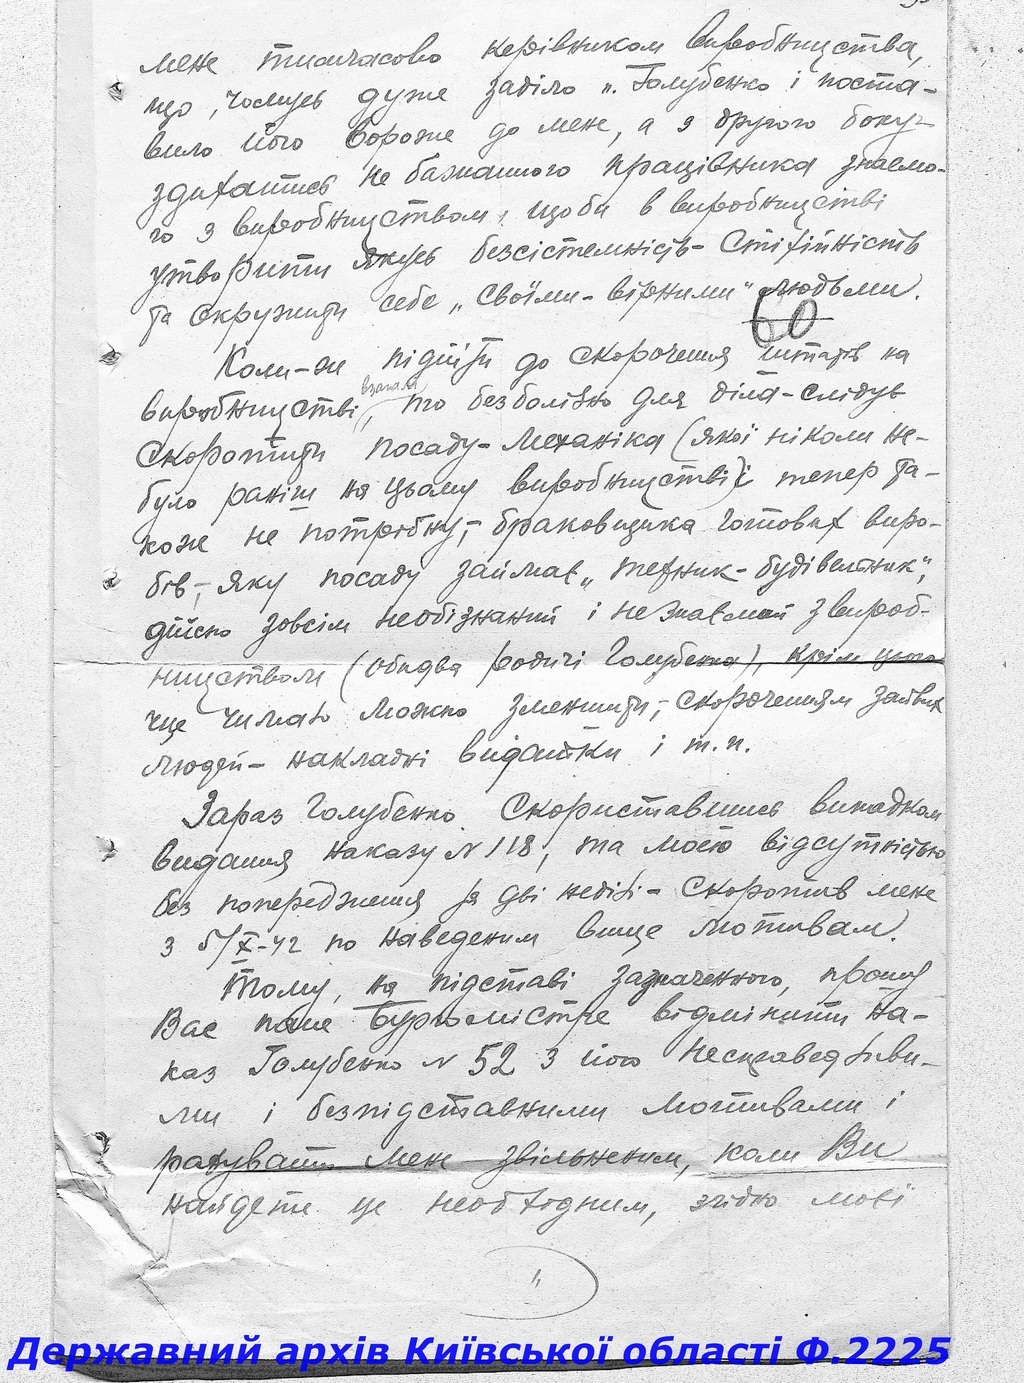 мене тимчасово керівником виробництва,
що, чомусь дуже заділо п. Голубенко і поста-
вило його вороже до мене, а з другого боку-
здихатись не бажаного працівника знаємо-
го з виробництвом, щоби в виробництві
утворити якусь безсістемність-стіхійність
та скружити себе „своїми-вірними" людьми.
60
Коли-ж підійти до скорочення штатів на
виробництві взагалі, то безболізно для діла-слідує
скоротити посаду-механіка (якої ніколи не-
було раніш на цьому виробництві) і тепер та-
кож не потрібну,- браковщика готових виро-
бів,- яку посаду займає „технік-будівельник",
дійсно зовсім необізнаний і не знаємий з вироб-
ництвом (обидва родичі Голубенка), крім цього
ще чимало можно зменшити,- скороченням зайвих
людей- накладні видатки і т.п.
Зараз Голубенко. Скориставшись випадком
видання наказу N 118, та моєю відсутністью
без попередження за дві неділі- скоротив мене
з 5/X-42 по наведеним вище мотивам.
Тому, на підставі зазначенного, прошу
Вас пане Бургомістре відмінити на-
каз Голубенко N 52 з його несправедливи-
ми і безпідставними мотивами і
рахувати мене звільненим, коли Ви
найдете це необхідним, згідно моєї
Державний архів Київської області Ф.2225